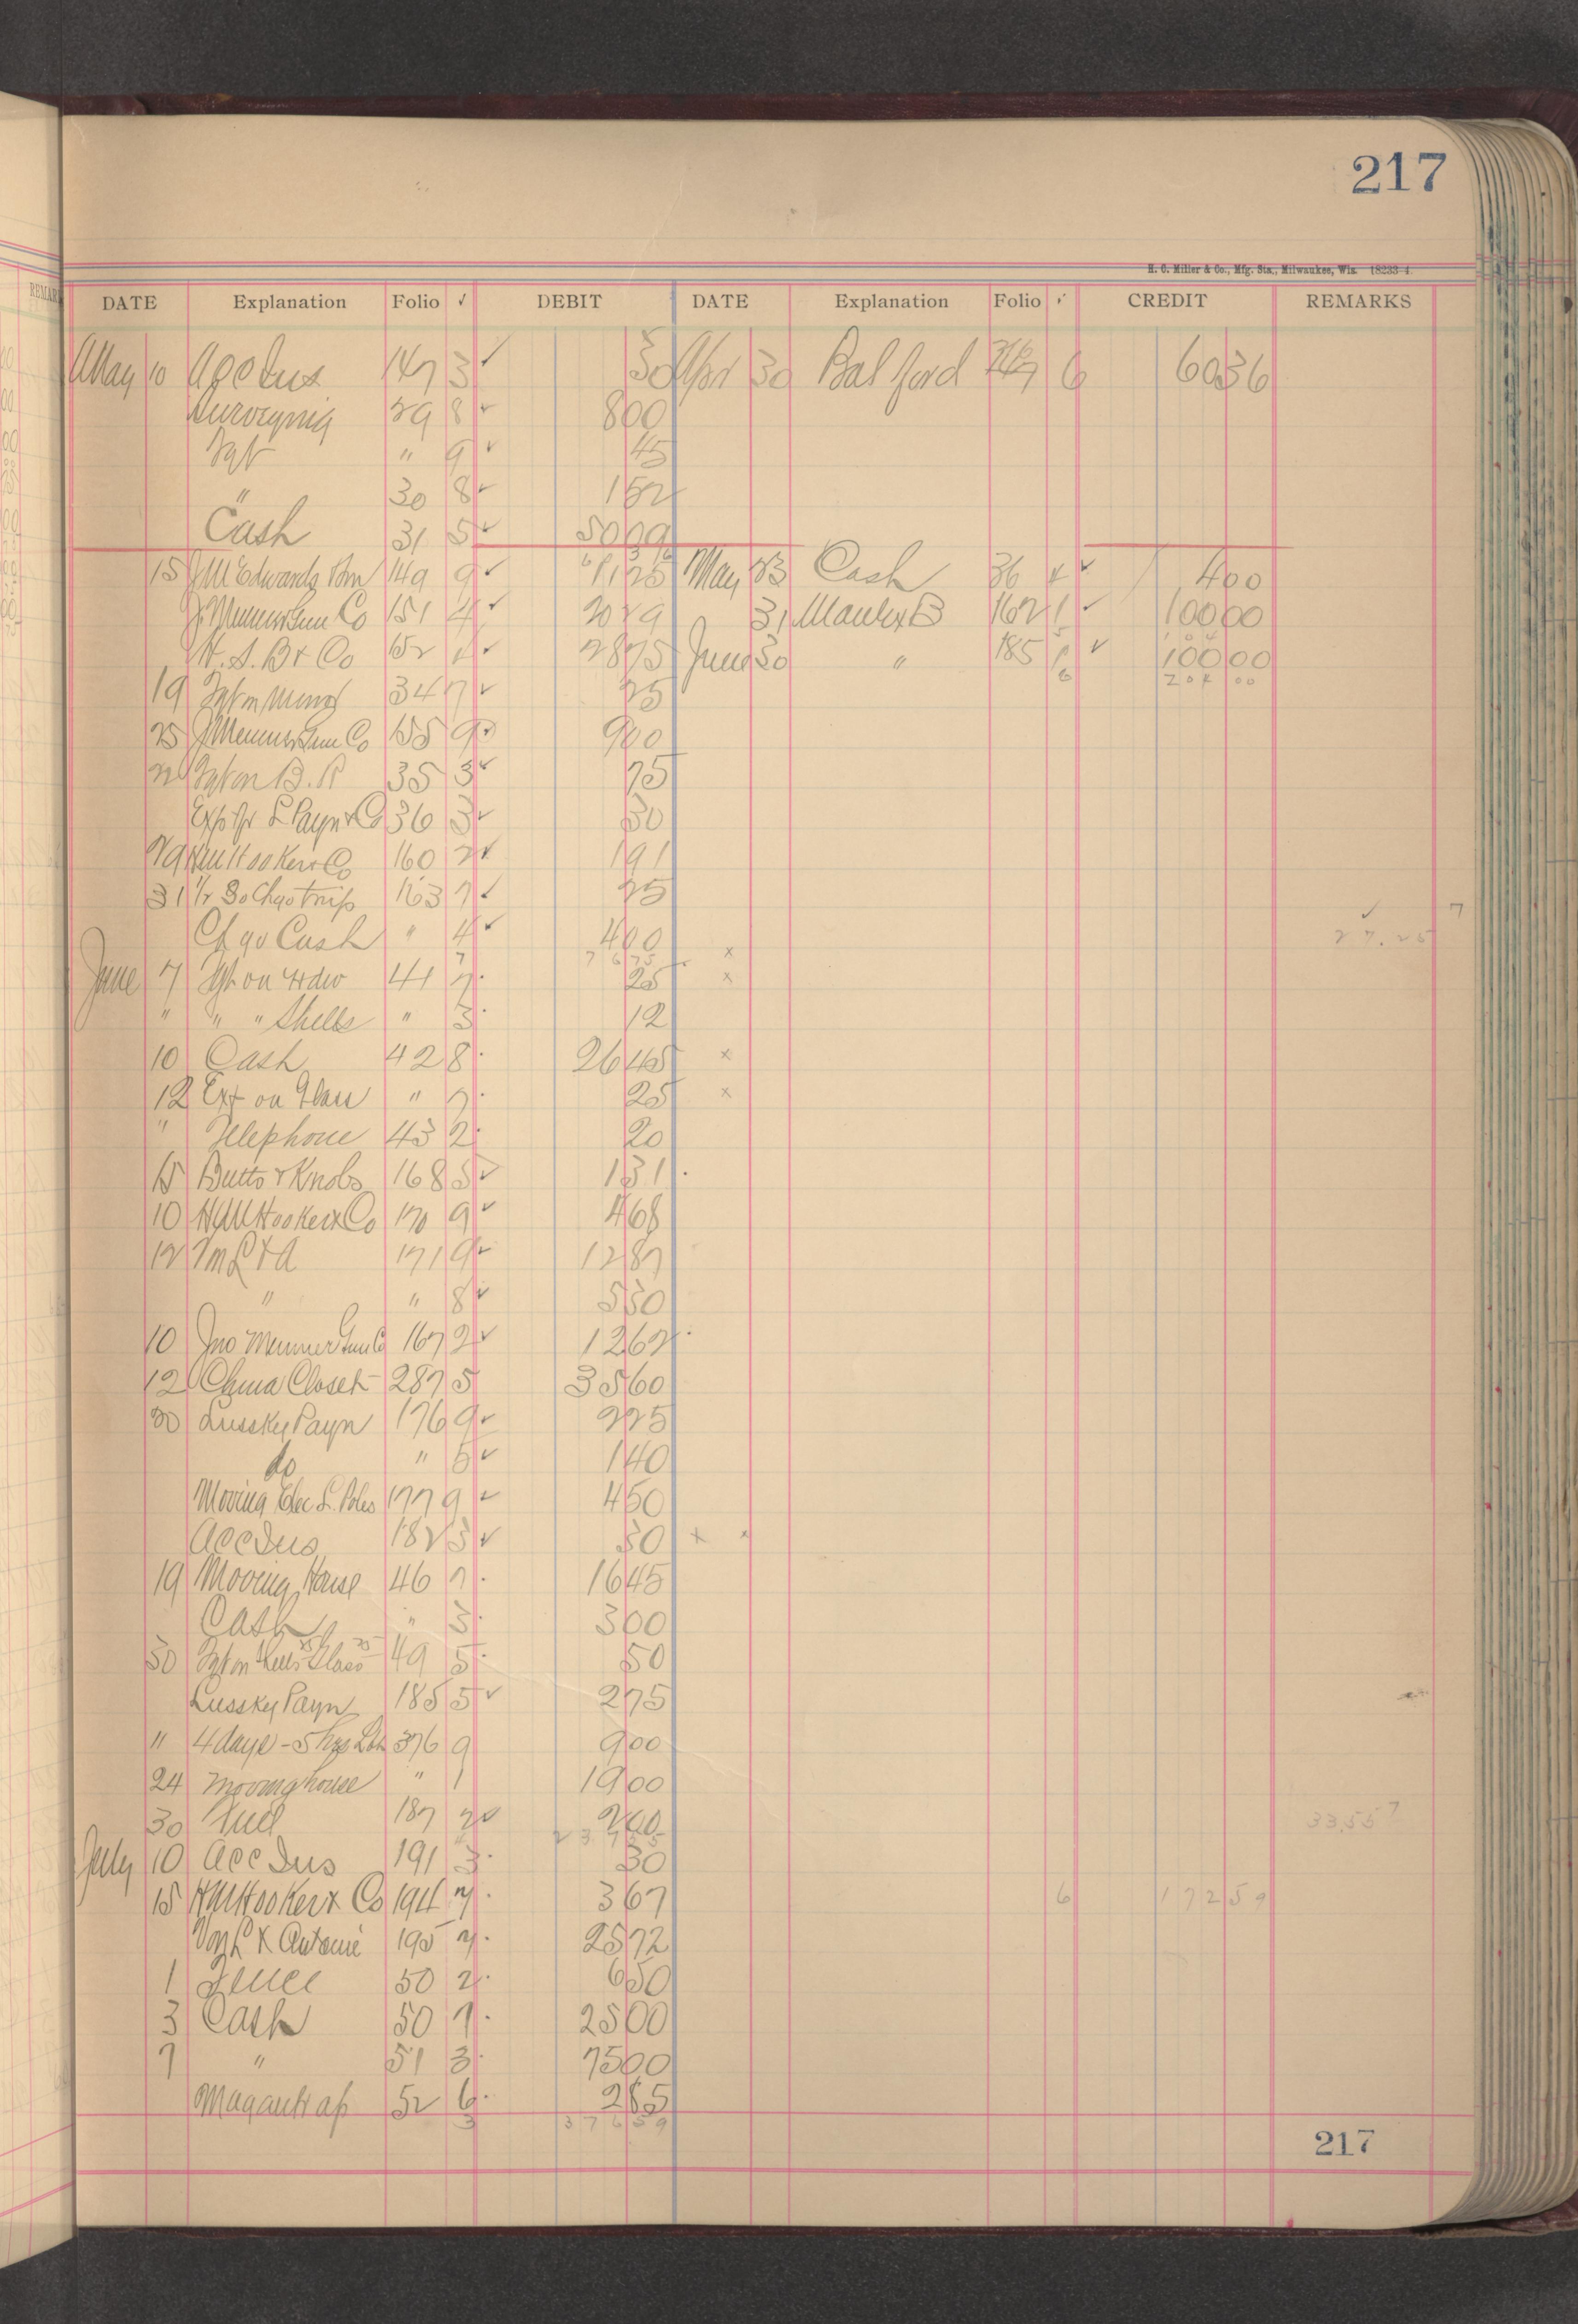 217
H. C. Miller & Co., Mfg. Sta., Milwaukee, Wis. 18233-4.
DATE Explanation Folio ✓ DEBIT DATE Explanation Folio ✓ CREDIT REMARKS
May 10 Acc Ins 147 3 ✓ 30 Apr 30 Bal ford 6 60 36
Surveying 29 8 ✓ 8 00
Fgt " 9 ✓ 45
" 30 8 ✓ 1 52
Cash 31 5 ✓ 50 09
15 J M Edwards 149 9 ✓ 11 25 May 23 Cash 36 4 ✓ 4 00
J. Lum Co 151 4 ✓ 20 29 31 162 1 ✓ 100 00
H. S. B & Co 152 1 ✓ 28 75 June 30 " 185 1 ✓ 100 00
6 204 00
19 Fgt on 34 7 ✓ 25
25 Lum Co 155 9 ✓ 9 00
22 Fgt on B. P. 35 3 ✓ 75
Exp fr L Payn & Co 36 3 ✓ 30
29 HM Hooker & Co 160 2 ✓ 1 91
31 1/2 So Chgo trip 163 7 ✓ 25 ✓ 7
Cash " 4 ✓ 4 00 27.25
7 76 75 x
June 7 Fgt on Hdw 41 7 25 x
" " " Shells " 3 12
10 Cash 42 8 26 45 x
12 Ex on Glass " 7 25 x
" Telephone 43 2 20
15 Butts & Knobs 168 5 ✓ 1 31
10 HM Hooker & Co 170 9 ✓ 4 68
12 Vm L & A 171 9 ✓ 12 87
" " 8 ✓ 5 30
10 Jno Lum Co 167 2 ✓ 12 62
12 China Closet 287 5 35 60
20 Lussky Payn 176 9 ✓ 2 25
do " 5 ✓ 1 40
Moving Elec L. Poles 177 9 ✓ 4 50
Acc Ins 182 3 ✓ 30 x x
19 Moving House 46 7 16 45
Cash " 3 3 00
30 Fgt on Glass 49 5 50
Lussky Payn 185 5 ✓ 2 75
" 4 days - 5 hrs 376 9 9 00
24 moving house " 1 19 00
30 Fuel 187 2 ✓ 2 00 33.55 7
July 10 Acc Ins 191 3 30
15 HM Hooker & Co 194 7 3 67 6 172 59
L & Antoine 195 7 25 72
1 Fence 50 2 6 50
3 Cash 50 7 25 00
7 " 51 3 75 00
52 6 2 85
3 376 59
217